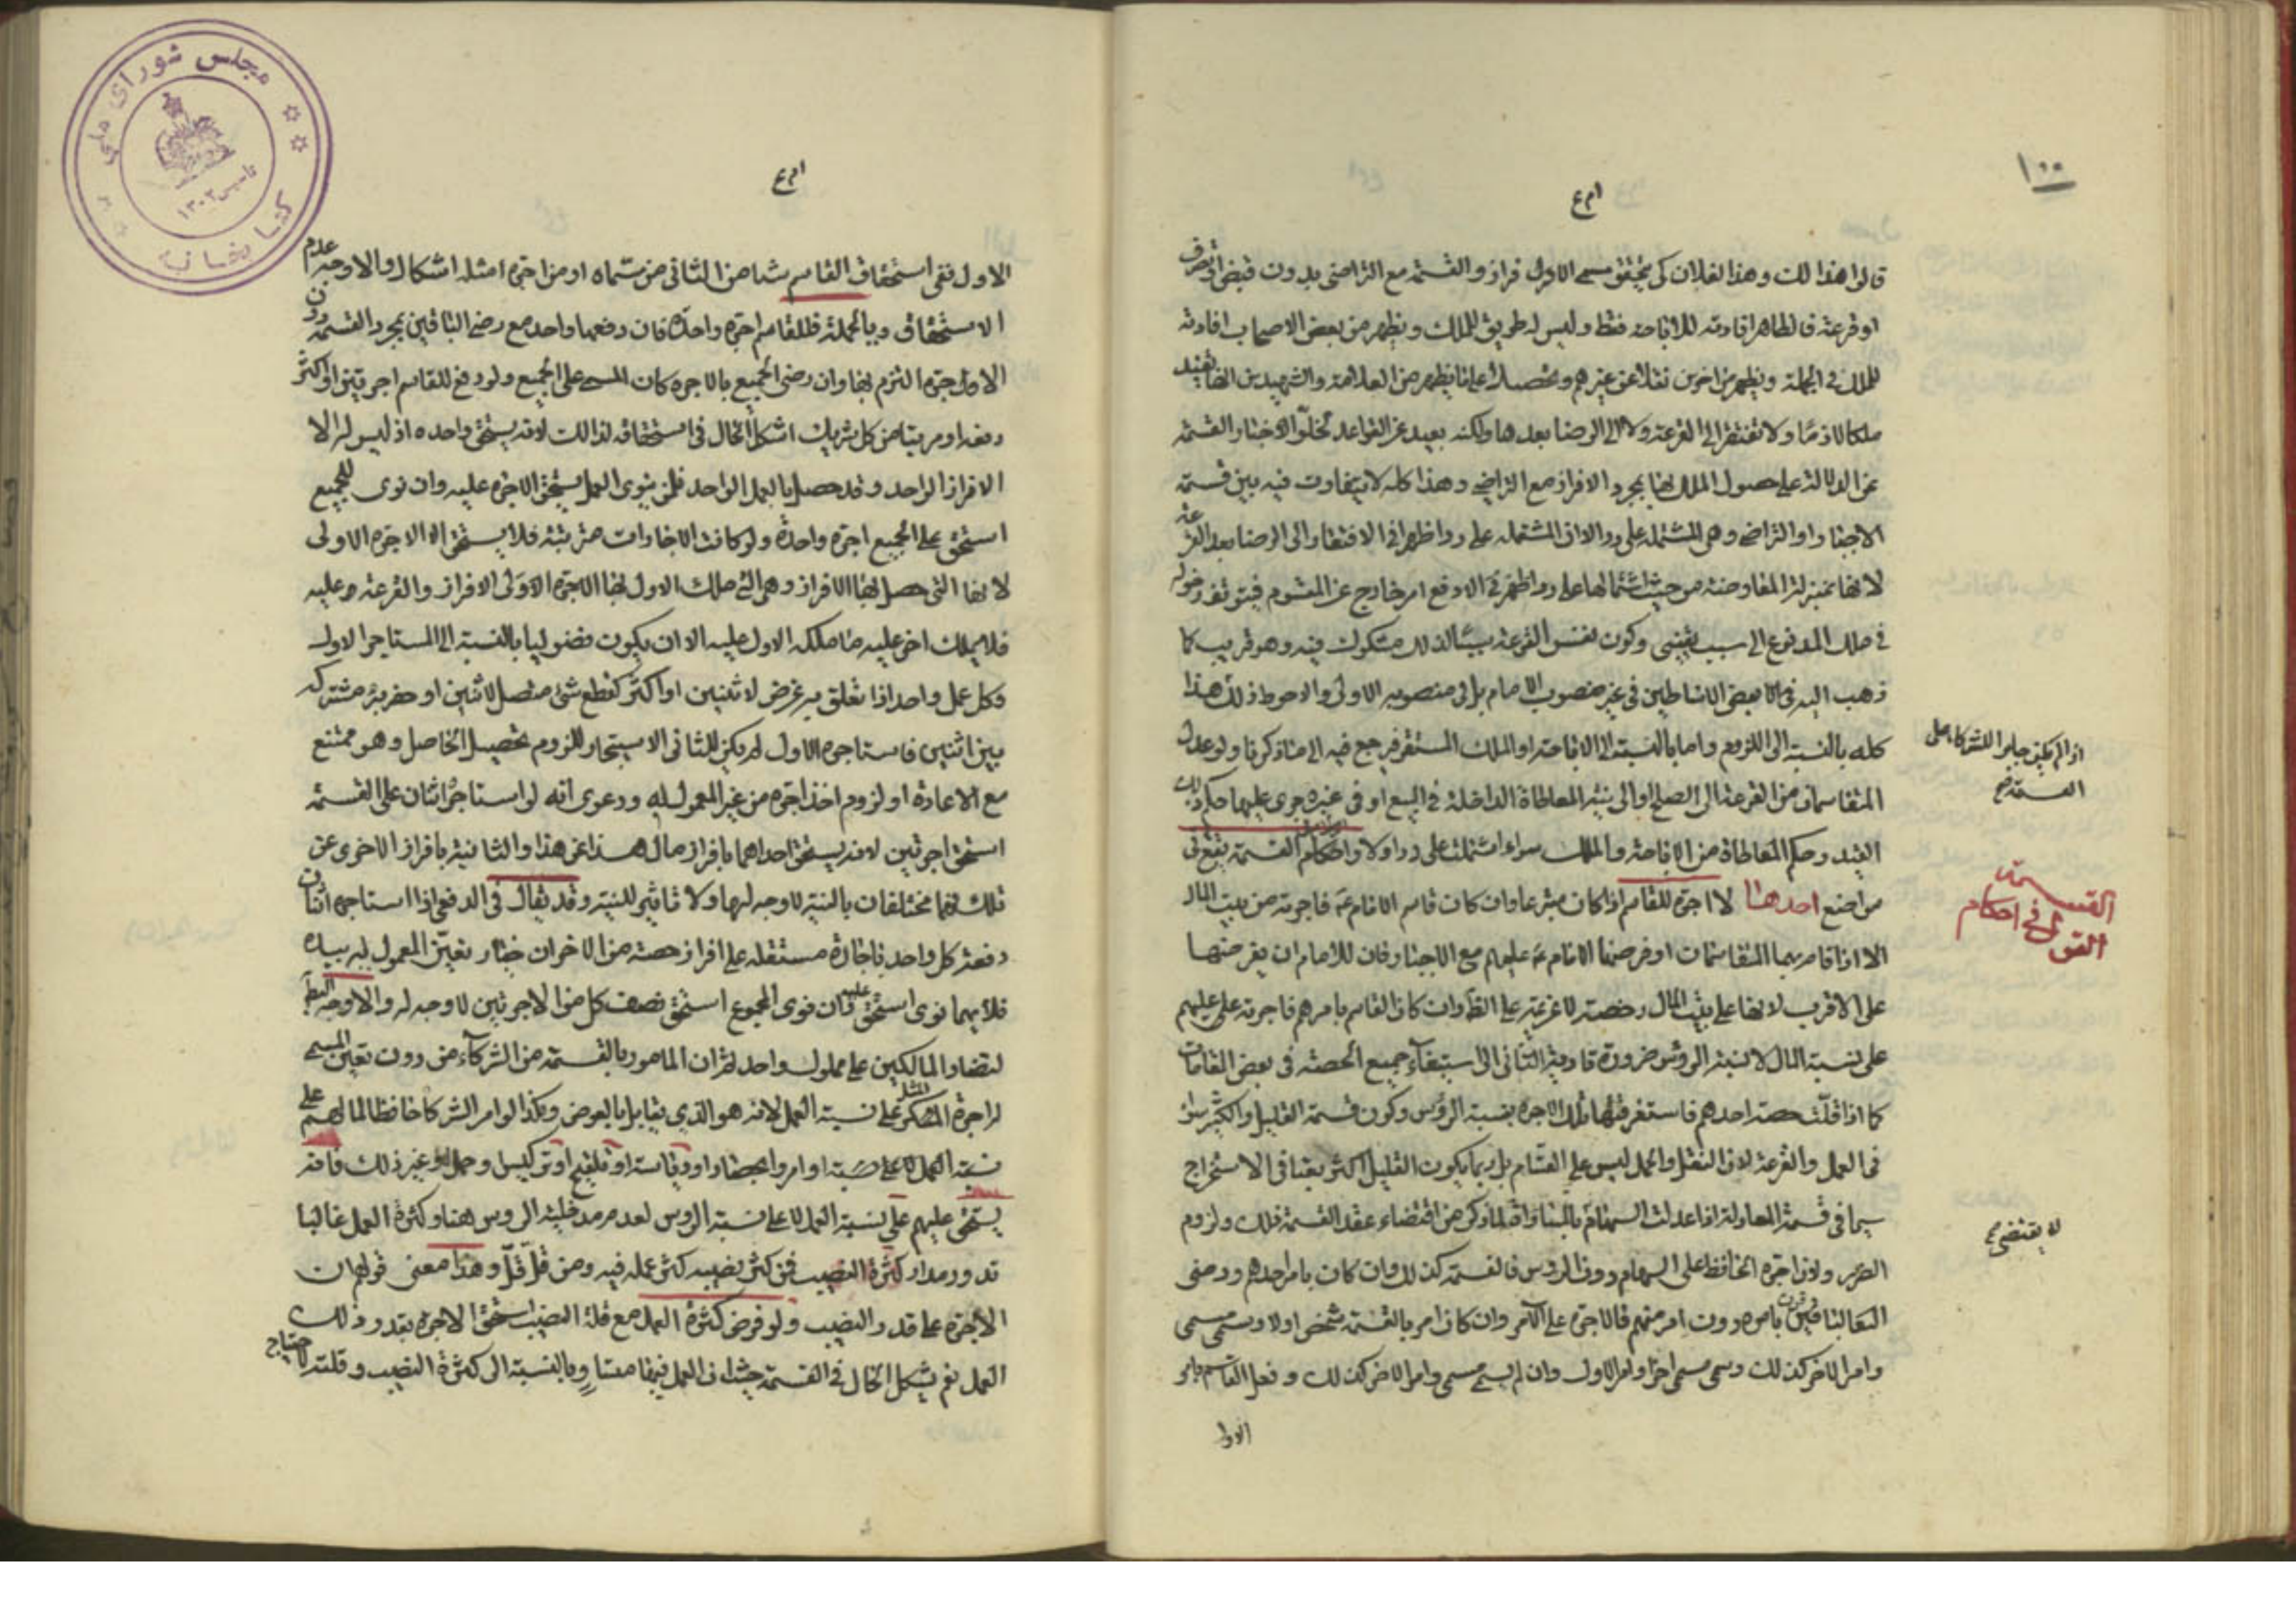 ١٠٠
قالوا هذا لك وهذا لفلان كي يتحقق مسمى الافراز والقسمة مع التراضي بدون قبض او تصرف
او قرعة فالظاهر افادته للاباحة فقط وليس له طريق للملك ويظهر من بعض الاصحاب افادته
للملك في الجملة ويظهر من اخرين نقلا عن غيرهم
ملكا لازما ولا تفتقر الى القرعة ولا الى الرضا بعدها ولكنه بعيد عن القواعد لخلو الاخبار القسمة
عن الدلالة على حصول الملك بها بمجرد الافراز مع التراضي وهذا كله لا يتفاوت فيه بين قسمة
الاجبار او التراضي وهي المشتملة على رد الا ان المشتملة على رد اظهر في الافتقار الى الرضا بعد القرعة
لانها بمنزلة المعاوضة من حيث اشتمالها على رد اظهر في ان الدفع امر خارج عن المقسوم فيتوقف دخوله
في ملك المدفوع الى سبب يقيني وكون نفس القرعة سببا لذلك مشكوك فيه وهو قريب كما
ذهب اليه في الا بعض الاساطين في غير منصوب الامام بل في منصوبه الاولى والاحوط ذلك هذا
كله بالنسبة الى اللزوم واما بالنسبة الى الاباحة او الملك المستقر فيرجع فيه الى ما ذكرنا ولو عدل
المتقاسمان من القرعة الى الصلح او الى بنية المعاطاة الداخلة في البيع او في غيره جرى عليها حكم ذلك
القيد وحكم المعاطاة من الاباحة والملك سواء اشتملت على رد اولا واحكام القسمة يقع في
مواضع احدها لا اجرة للقاسم اذا كان متبرعا وان كان قاسم الامام ع فاجرته من بيت المال
الا اذا قام بها المتقاسمان او فرضها الامام ع عليهم مع الاجبار فان للامام ان يفرضها
على الاقرب لانها على بيت المال رخصة لا عزيمة على الظ وان كان القاسم بامرهم فاجرته عليهم
على نسبة المال لا نسبة الرؤس ضرورة تادية الثاني الى استيفاء جميع الحصة في بعض المقامات
كما اذا قلت حصة احدهم فاستغرقتها تلك الاجرة بنسبة الرؤس وكون قسمة القليل والكثير سواء
في العمل والقرعة لان النقل والحمل ليس على القسام بل ربما يكون القليل اكثر تعبا في الاستخراج
سيما في قسمة المعادلة اذا عدلت السهام بالمساواة لما ذكر من اقتضاء عقد القسمة ذلك ولزوم
الضرر ولان اجرة الحافظ على السهام دون الرؤس فالقسمة كذلك وان كان بامر احدهم ورضى
الباقين بامره دون امر منهم فالاجرة على الآمر وان كان امر بالقسمة شخص اولا وسمى مسمى
وامر الاخر كذلك وسمى مسمى اخر اولا الاول وان لم يسم مسمى وامر الاخر كذلك وفعل القاسم بامر
الاول
اذا لم يكن جابرا للشركاء على
القسمة صح
القول في احكام
القسمة
لا يقتضي صح
الاول ففي استحقاق القاسم شيئا من الثاني من مسماه او من اجرة امثله اشكال والاوجه عدم
الاستحقاق وبالجملة فللقاسم اجرة واحدة فان دفعها واحد مع رضى الباقين بمجرد القسمة دون
الاجرة التزم بها وان رضى الجميع بالاجرة كان المسمى على الجميع ولو دفع للقاسم اجرتين او اكثر
دفعة او مرتبا من كل شريك اشكل الحال في استحقاقه لذلك لانه يستحق واحدة اذ ليس له الا
الافراز الواحد وقد حصل بالعمل الواحد فلمن ينوى العمل يستحق الاجرة عليه وان نوى للجميع
استحق على الجميع اجرة واحدة ولو كانت الاجارات مترتبة فلا يستحق الا الاجرة الاولى
لانها التي حصل بها الافراز وهي التي ملك الاول بها الاجرة الاولى الافراز والقرعة وعليه
فلا يملك اخر عليه ما ملكه الاول عليه الا ان يكون فضوليا بالنسبة الى المستاجر الاول
وكل عمل واحد اذا تعلق به غرض لاثنين او اكثر كقطع شئ متصل لاثنين او حفر بئر مشتركة
بين اثنين فاستاجره الاول لم يكن للثاني الاستيجار للزوم تحصيل الحاصل وهو ممتنع
مع الاعادة او لزوم اخذ اجرة من غير المعمول له ودعوى انه لو استاجره اثنان على القسمة
استحق اجرتين لانه يستحق احداهما بافراز مال هذا عن هذا والثانية بافراز الاخرى عن
تلك فهما مختلفان بالنية لا وجه لها ولا تاثير للنية وقد يقال في الدفع اذا استاجره اثنان
دفعة كل واحد باجارة مستقلة على افراز حصته من الاخر ان خيار تعيين المعمول له بيده
فلايهما نوى استحق عليه وان نوى المجموع استحق نصف كل من الاجرتين لا وجه له والاوجه البطلان
لتضاد المالكين على مملوك واحد ثم ان المامور بالقسمة من الشركاء من دون تعيين المسمى
له اجرة المثل على نسبة العمل لانه هو الذي يقابل بالعوض وكذا لو امر الشركاء حافظا لمالهم على
نسبة العمل لا على حسبه او امروا بحصاد او دياسة او تلقيح او توكيس وحمل او غير ذلك فانه
يستحق عليهم على نسبة العمل لا على نسبة الرؤس لعدم مدخلية الرؤس هنا وكثرة العمل غالبا
تدور مدار كثرة النصيب فمن كثر نصيبه كثر عمله فيه ومن قل قل وهذا معنى قولهم ان
الاجرة على قدر النصيب ولو فرض كثرة العمل مع قلة النصيب استحق الاجرة بقدر ذلك
العمل نعم يشكل الحال في القسمة حيث ان العمل فيها متساو بالنسبة الى كثرة النصيب وقلته لاحتياج
مجلس شورای ملی
کتابخانه
تاسیس ١٣٠٢